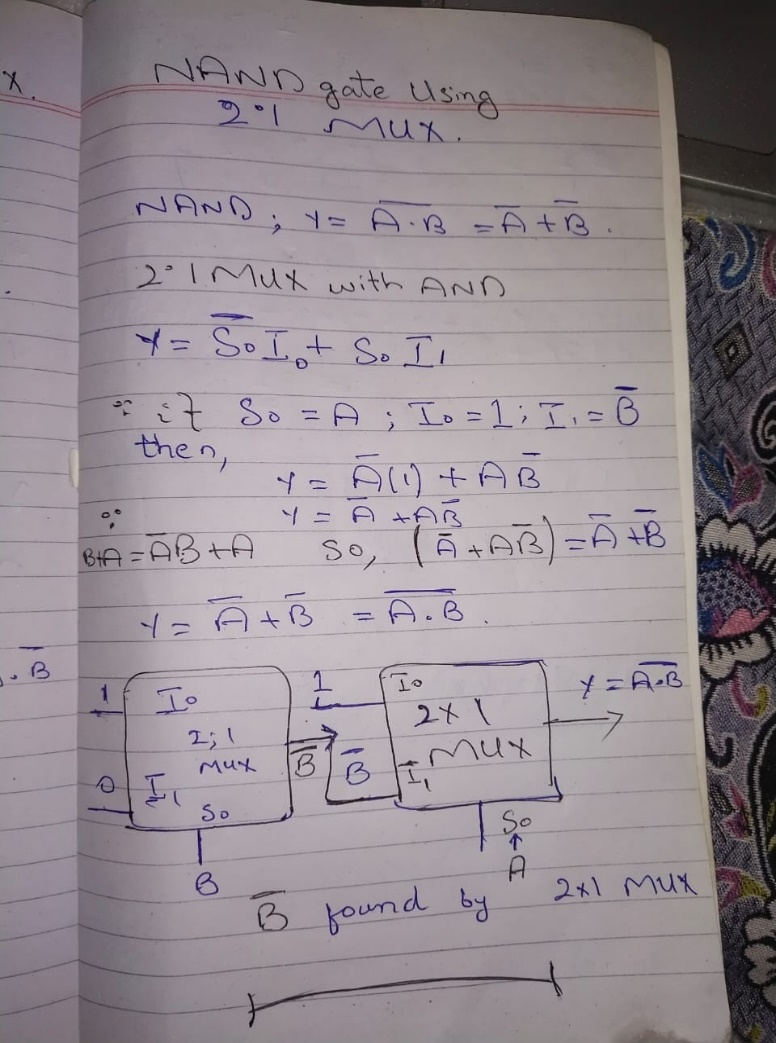 x.
NAND gate Using
2:1 MUX.
NAND ; Y = A̅.̅B̅ = A̅ + B̅ .
2:1 MUX with AND
Y = S̅o̅ I₀ + So I₁
∵ if So = A ; Io = 1 ; I₁ = B̅
then,
Y = A̅(1) + A B̅
Y = A̅ + AB̅
∵
B+A = A̅B + A so, (A̅ + AB̅) = A̅ + B̅
Y = A̅ + B̅ = A̅.̅B̅ .
. B̅
1 Io
2;1
MUX
0 I₁
So
B
B̅
1 Io
2x1
MUX
B̅ I₁
Y = A̅.̅B̅
So
↑
A
B̅ found by 2x1 MUX